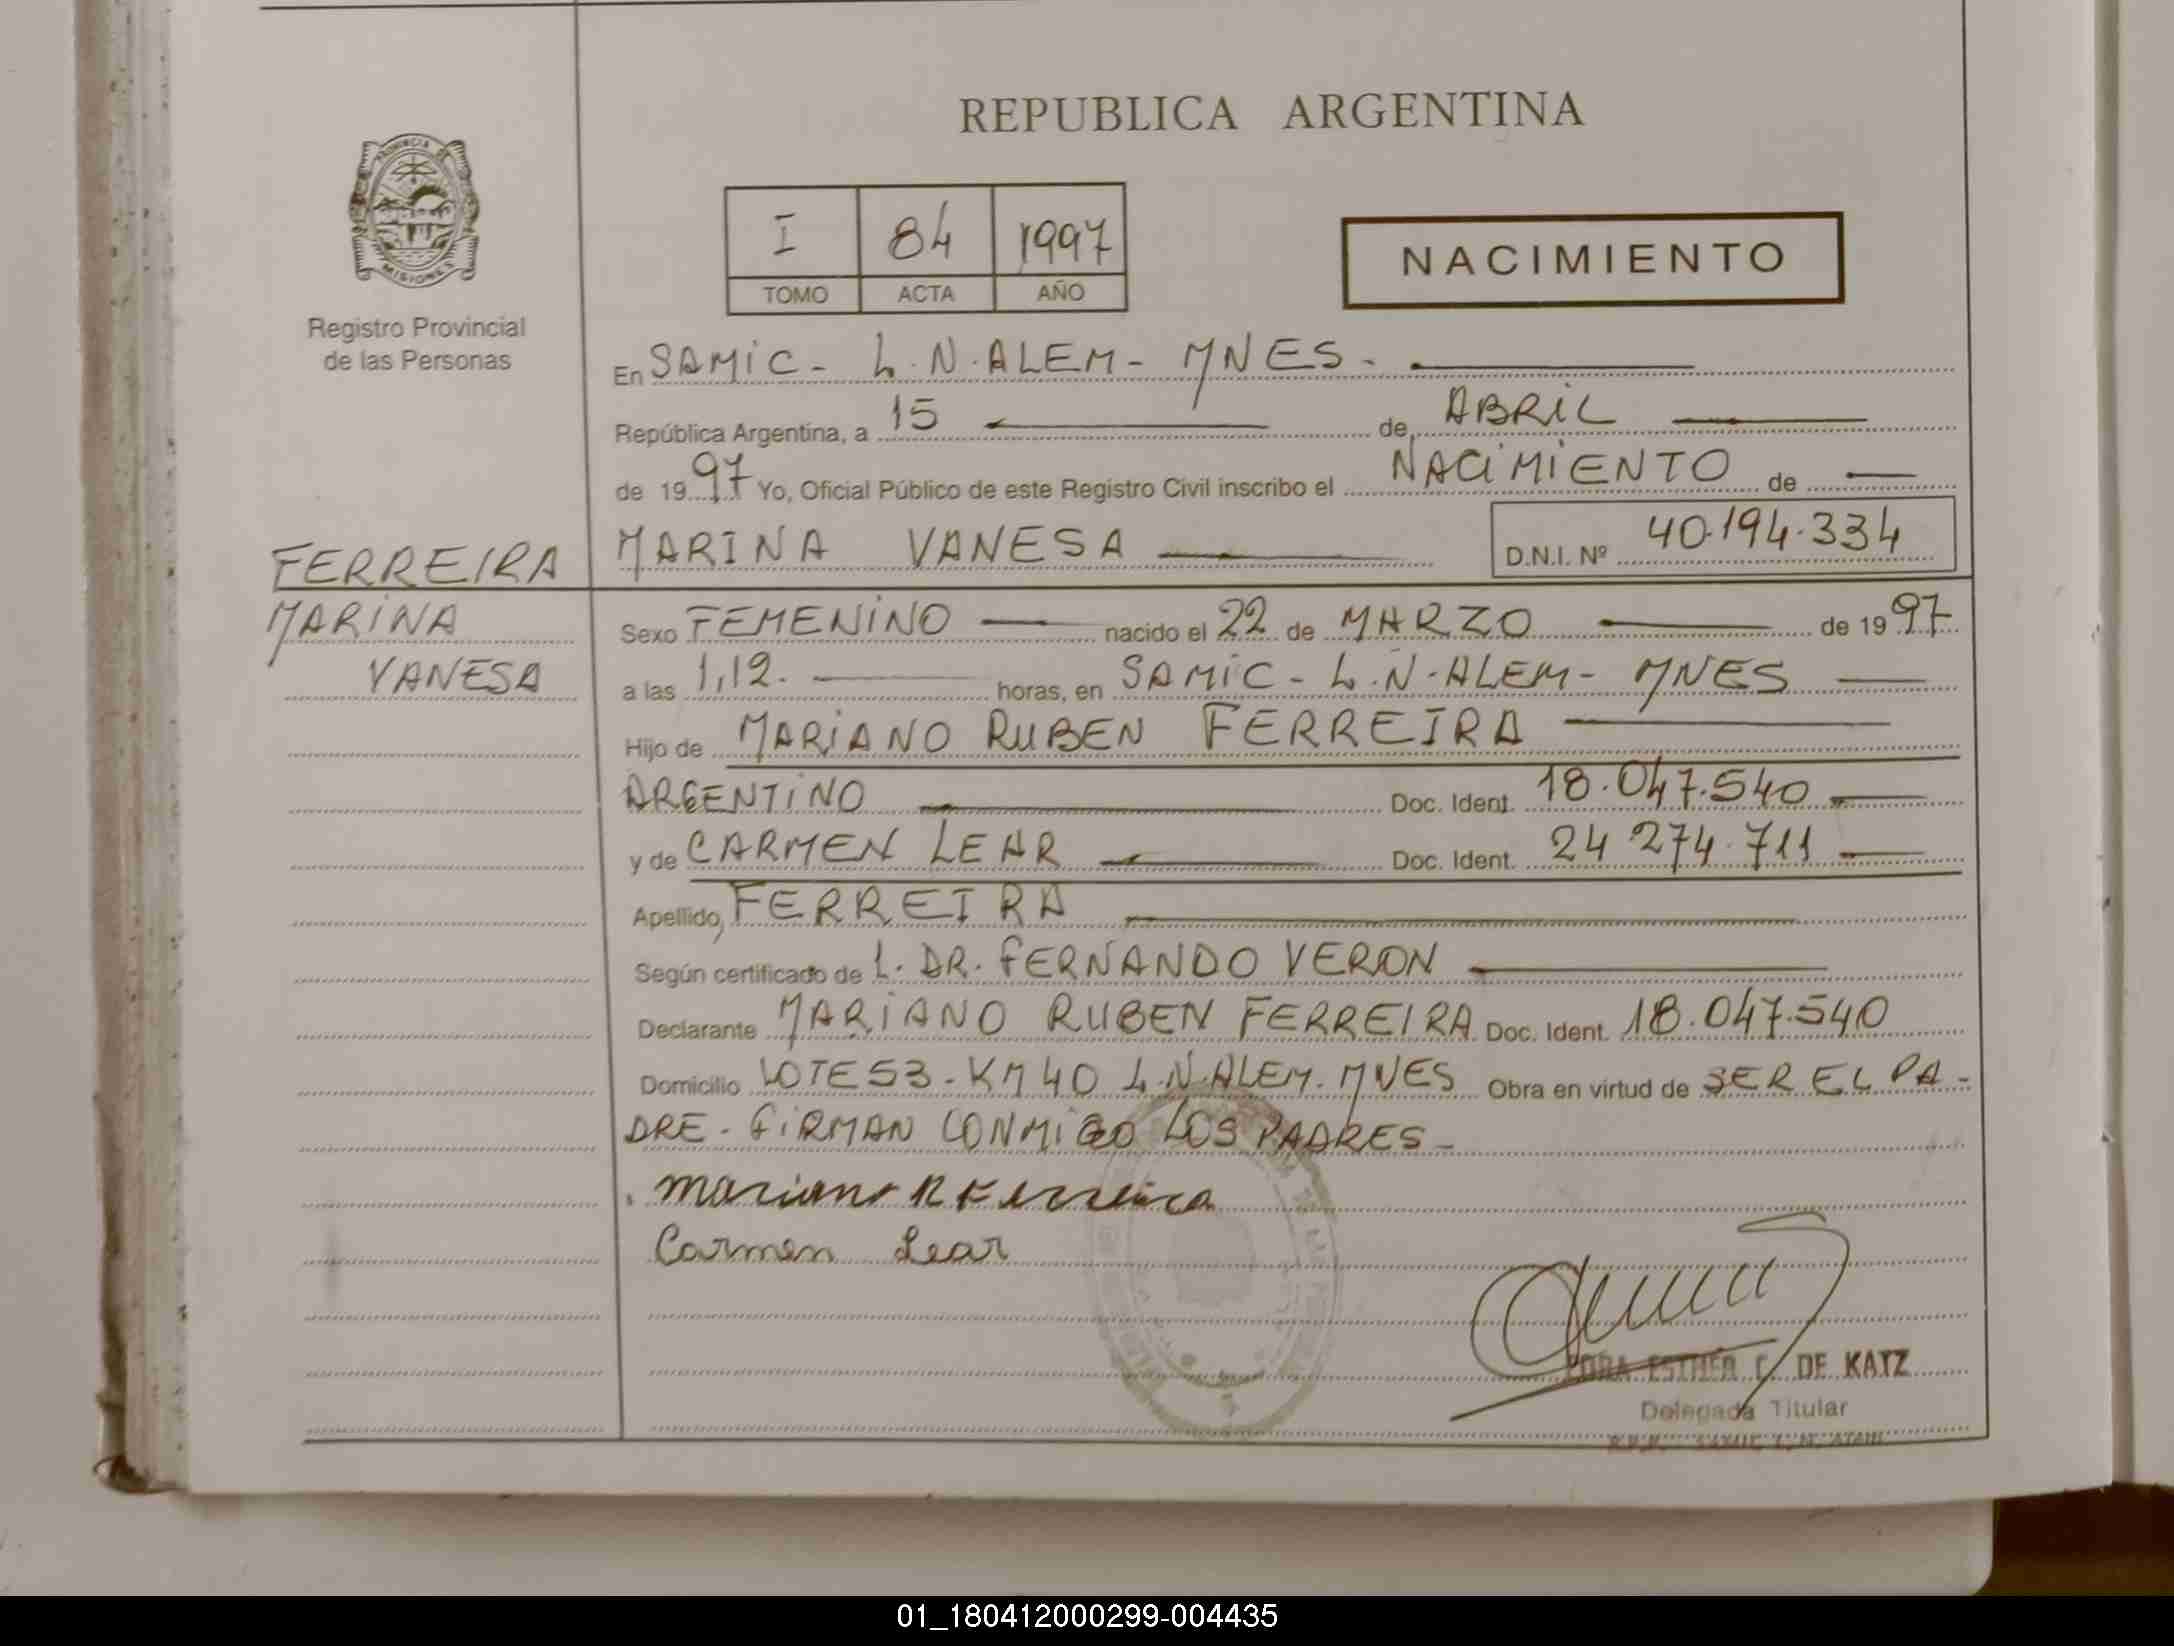 REPUBLICA ARGENTINA
PROVINCIA DE
MISIONES
Registro Provincial
de las Personas
I 84 1997
TOMO ACTA AÑO
NACIMIENTO
En SAMIC - L.N.ALEM - MNES -
República Argentina, a 15 de ABRIL
de 1997 Yo, Oficial Público de este Registro Civil inscribo el NACIMIENTO de
MARINA VANESA D.N.I. Nº 40.194.334
FERREIRA
MARINA
VANESA
Sexo FEMENINO nacido el 22 de MARZO de 1997
a las 1,12. horas, en SAMIC - L.N.ALEM - MNES
Hijo de MARIANO RUBEN FERREIRA
ARGENTINO Doc. Ident. 18.047.540
y de CARMEN LEAR Doc. Ident. 24 274.711
Apellido, FERREIRA
Según certificado de L. DR. FERNANDO VERON
Declarante MARIANO RUBEN FERREIRA Doc. Ident. 18.047.540
Domicilio LOTE 53 - KM 40 L.N.ALEM. MNES Obra en virtud de SER EL PA-
DRE - FIRMAN CONMIGO LOS PADRES -
Mariano R Ferreira
Carmen Lear
ESTHER C. DE KATZ
Delegada Titular
01_180412000299-004435